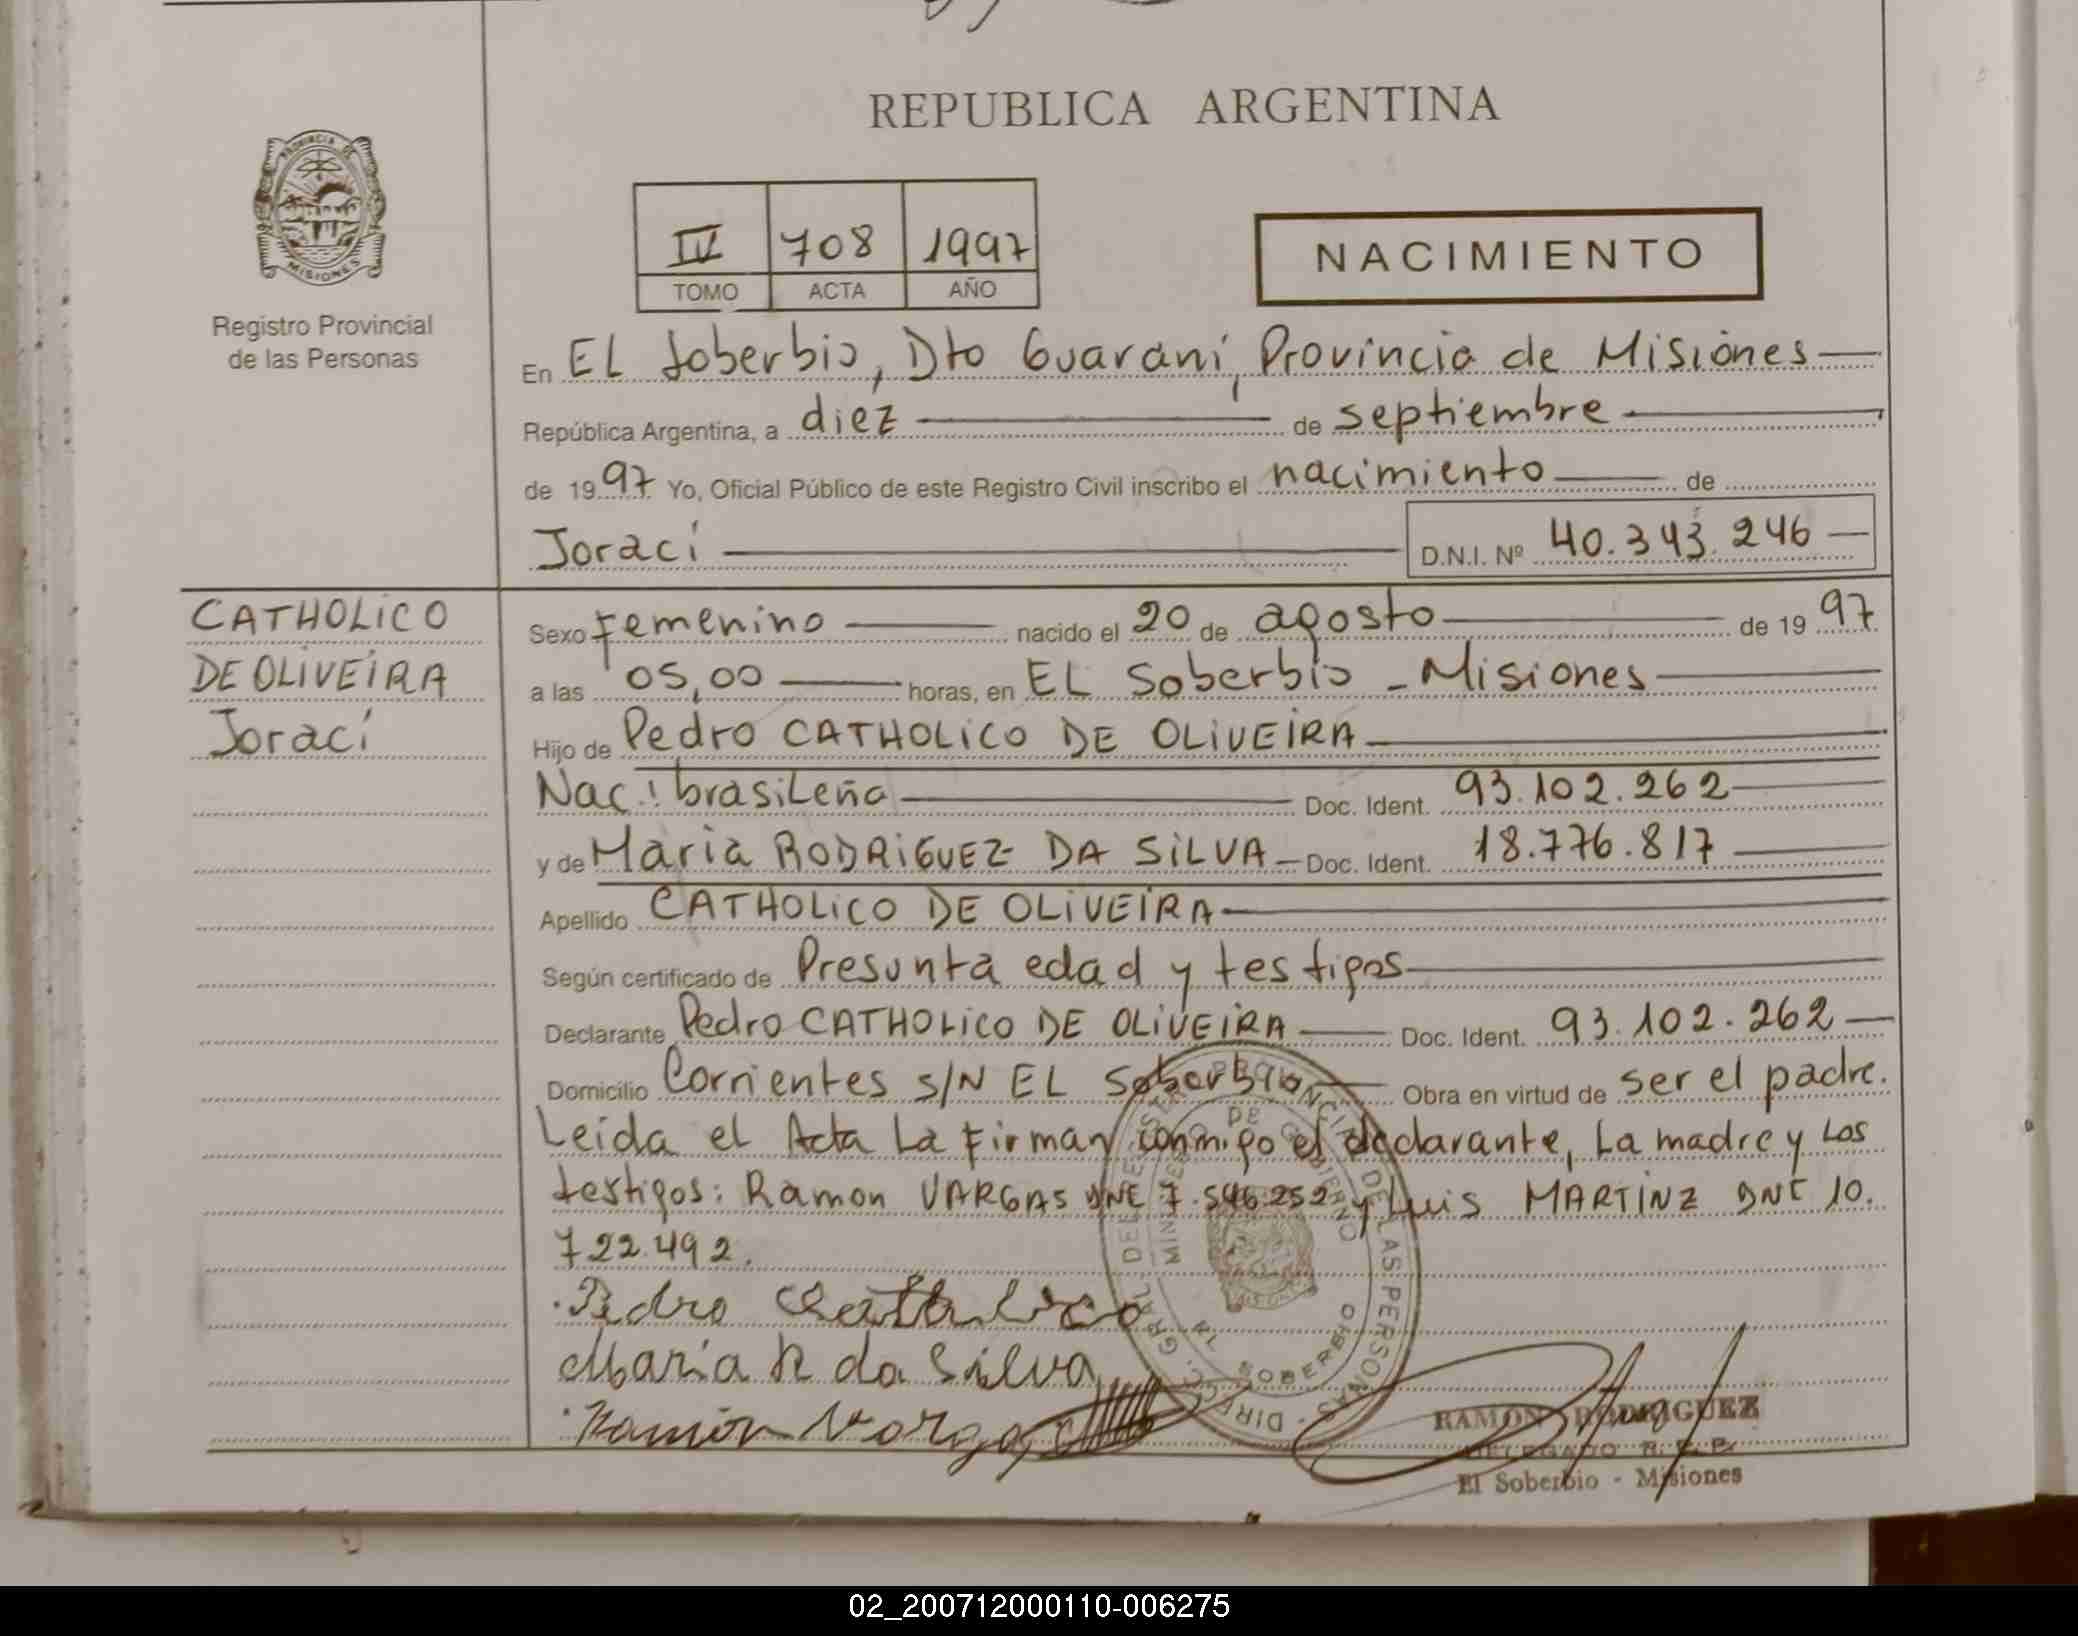 REPUBLICA ARGENTINA
PROVINCIA DE
MISIONES
Registro Provincial
de las Personas
IV 708 1997
TOMO ACTA AÑO
NACIMIENTO
En EL Soberbio, Dto Guaraní, Provincia de Misiones
República Argentina, a diez de septiembre
de 1997 Yo, Oficial Público de este Registro Civil inscribo el nacimiento de
Joraci
D.N.I. Nº 40.343.246
CATHOLICO
DE OLIVEIRA
Joraci
Sexo Femenino nacido el 20 de agosto de 1997
a las 05,00 horas, en EL Soberbio - Misiones
Hijo de Pedro CATHOLICO DE OLIVEIRA
Nac: brasileña Doc. Ident. 93.102.262
y de Maria RODRIGUEZ DA SILVA Doc. Ident. 18.776.817
Apellido CATHOLICO DE OLIVEIRA
Según certificado de Presunta edad y testigos
Declarante Pedro CATHOLICO DE OLIVEIRA Doc. Ident. 93.102.262
Domicilio Corrientes S/N EL Soberbio Obra en virtud de ser el padre.
Leida el Acta La Firman conmigo el declarante, La madre y Los
testigos: Ramon VARGAS DNI 7.546.252 y Luis MARTINZ DNI 10.
722.492.
Pedro Catholico
Maria R da Silva
Ramón Vargas
DIRECC. GRAL. DEL REGISTRO PROVINCIAL DE LAS PERSONAS
MINISTERIO DE GOBIERNO
EL SOBERBIO
RAMON RODRIGUEZ
DELEGADO R. P. P.
El Soberbio - Misiones
02_200712000110-006275